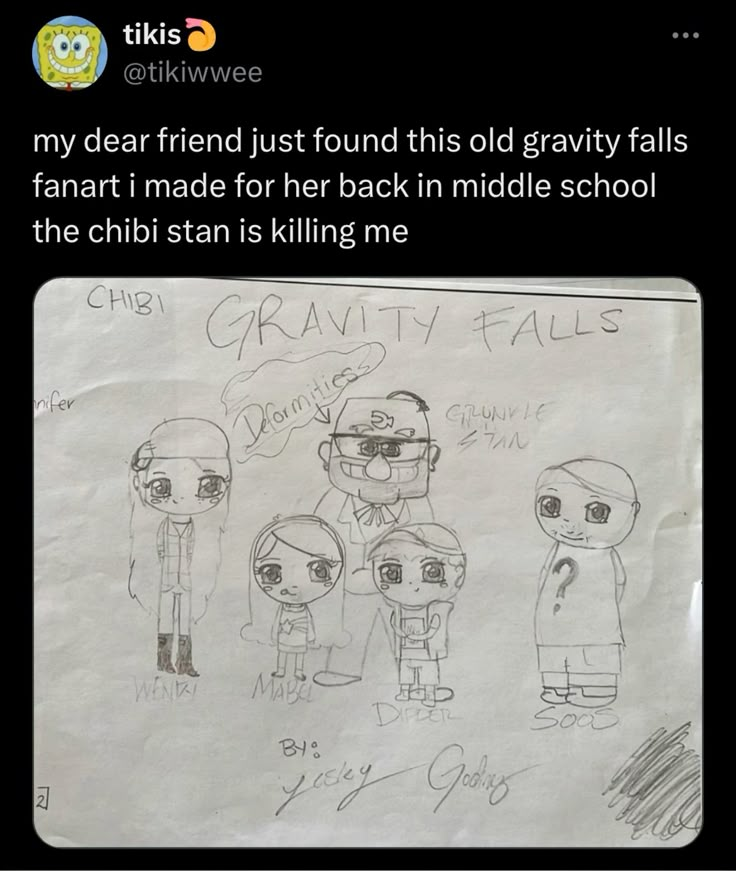 tikis
@tikiwwee
my dear friend just found this old gravity falls
fanart i made for her back in middle school
the chibi stan is killing me
CHIBI
GRAVITY FALLS
Deformities
nifer
GRUNKLE
STAN
?
WENDY
MABEL
DIPPER
SOOS
By:
2